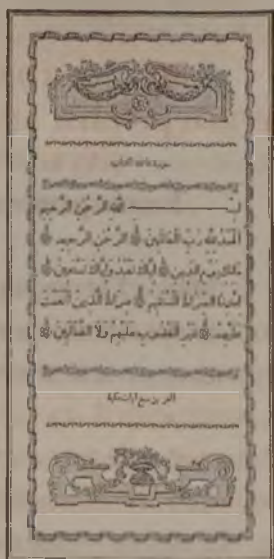 سورة فاتحة الكتاب
بِسْــــمِ اللهِ الرَّحْمٰنِ الرَّحِيمِ
اَلْحَمْدُ لِلّٰهِ رَبِّ الْعَالَمِينَ الرَّحْمٰنِ الرَّحِيمِ
مَالِكِ يَوْمِ الدِّينِ اِيَّاكَ نَعْبُدُ وَاِيَّاكَ نَسْتَعِينُ
اِهْدِنَا الصِّرَاطَ الْمُسْتَقِيمَ صِرَاطَ الَّذِينَ اَنْعَمْتَ
عَلَيْهِمْ غَيْرِ الْمَغْضُوبِ عَلَيْهِمْ وَلَا الضَّالِّينَ
سبع آيات مكية